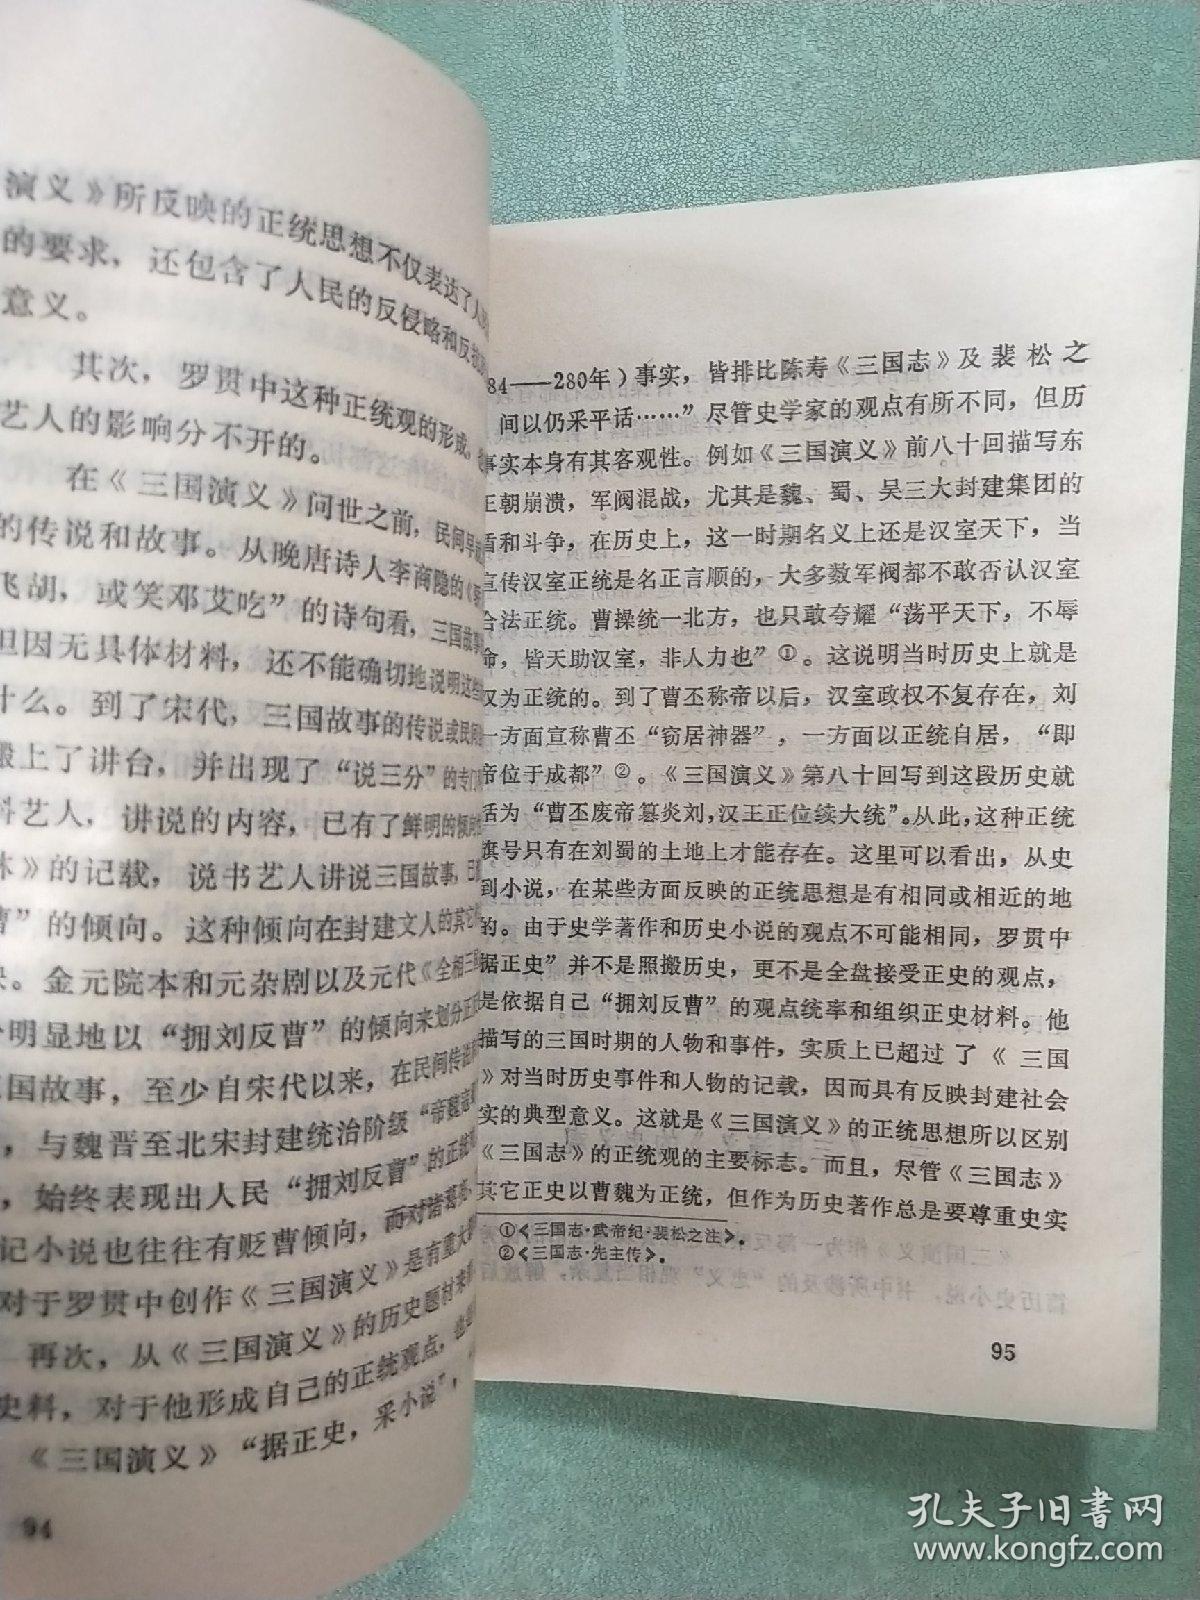 演义》所反映的正统思想不仅表达了人
的要求，还包含了人民的反侵略和反
意义。
其次，罗贯中这种正统观的形成，
艺人的影响分不开的。
在《三国演义》问世之前，民间早
的传说和故事。从晚唐诗人李商隐的《
飞胡，或笑邓艾吃”的诗句看，三国故事
但因无具体材料，还不能确切地说明这些
什么。到了宋代，三国故事的传说或民间
搬上了讲台，并出现了“说三分”的专门
科艺人，讲说的内容，已有了鲜明的倾向
林》的记载，说书艺人讲说三国故事，已
曹”的倾向。这种倾向在封建文人的其它
映。金元院本和元杂剧以及元代《全相三
明显地以“拥刘反曹”的倾向来划分正
国故事，至少自宋代以来，在民间传说
，与魏晋至北宋封建统治阶级“帝魏寇
，始终表现出人民“拥刘反曹”的正统
记小说也往往有贬曹倾向，而对诸葛亮
对于罗贯中创作《三国演义》是有重大
再次，从《三国演义》的历史题材来
史料，对于他形成自己的正统观点，也
《三国演义》“据正史，采小说”，
94
84——280年）事实，皆排比陈寿《三国志》及裴松之
间以仍采平话……”尽管史学家的观点有所不同，但历
事实本身有其客观性。例如《三国演义》前八十回描写东
王朝崩溃，军阀混战，尤其是魏、蜀、吴三大封建集团的
盾和斗争，在历史上，这一时期名义上还是汉室天下，当
宣传汉室正统是名正言顺的，大多数军阀都不敢否认汉室
合法正统。曹操统一北方，也只敢夸耀“荡平天下，不辱
命，皆天助汉室，非人力也”①。这说明当时历史上就是
汉为正统的。到了曹丕称帝以后，汉室政权不复存在，刘
一方面宣称曹丕“窃居神器”，一方面以正统自居，“即
帝位于成都”②。《三国演义》第八十回写到这段历史就
括为“曹丕废帝篡炎刘，汉王正位续大统”。从此，这种正统
旗号只有在刘蜀的土地上才能存在。这里可以看出，从史
到小说，在某些方面反映的正统思想是有相同或相近的地
的。由于史学著作和历史小说的观点不可能相同，罗贯中
据正史”并不是照搬历史，更不是全盘接受正史的观点，
是依据自己“拥刘反曹”的观点统率和组织正史材料。他
描写的三国时期的人物和事件，实质上已超过了《三国
》对当时历史事件和人物的记载，因而具有反映封建社会
实的典型意义。这就是《三国演义》的正统思想所以区别
《三国志》的正统观的主要标志。而且，尽管《三国志》
其它正史以曹魏为正统，但作为历史著作总是要尊重史实
①《三国志·武帝纪·裴松之注》。
②《三国志·先主传》。
95
孔夫子旧书网
www.kongfz.com